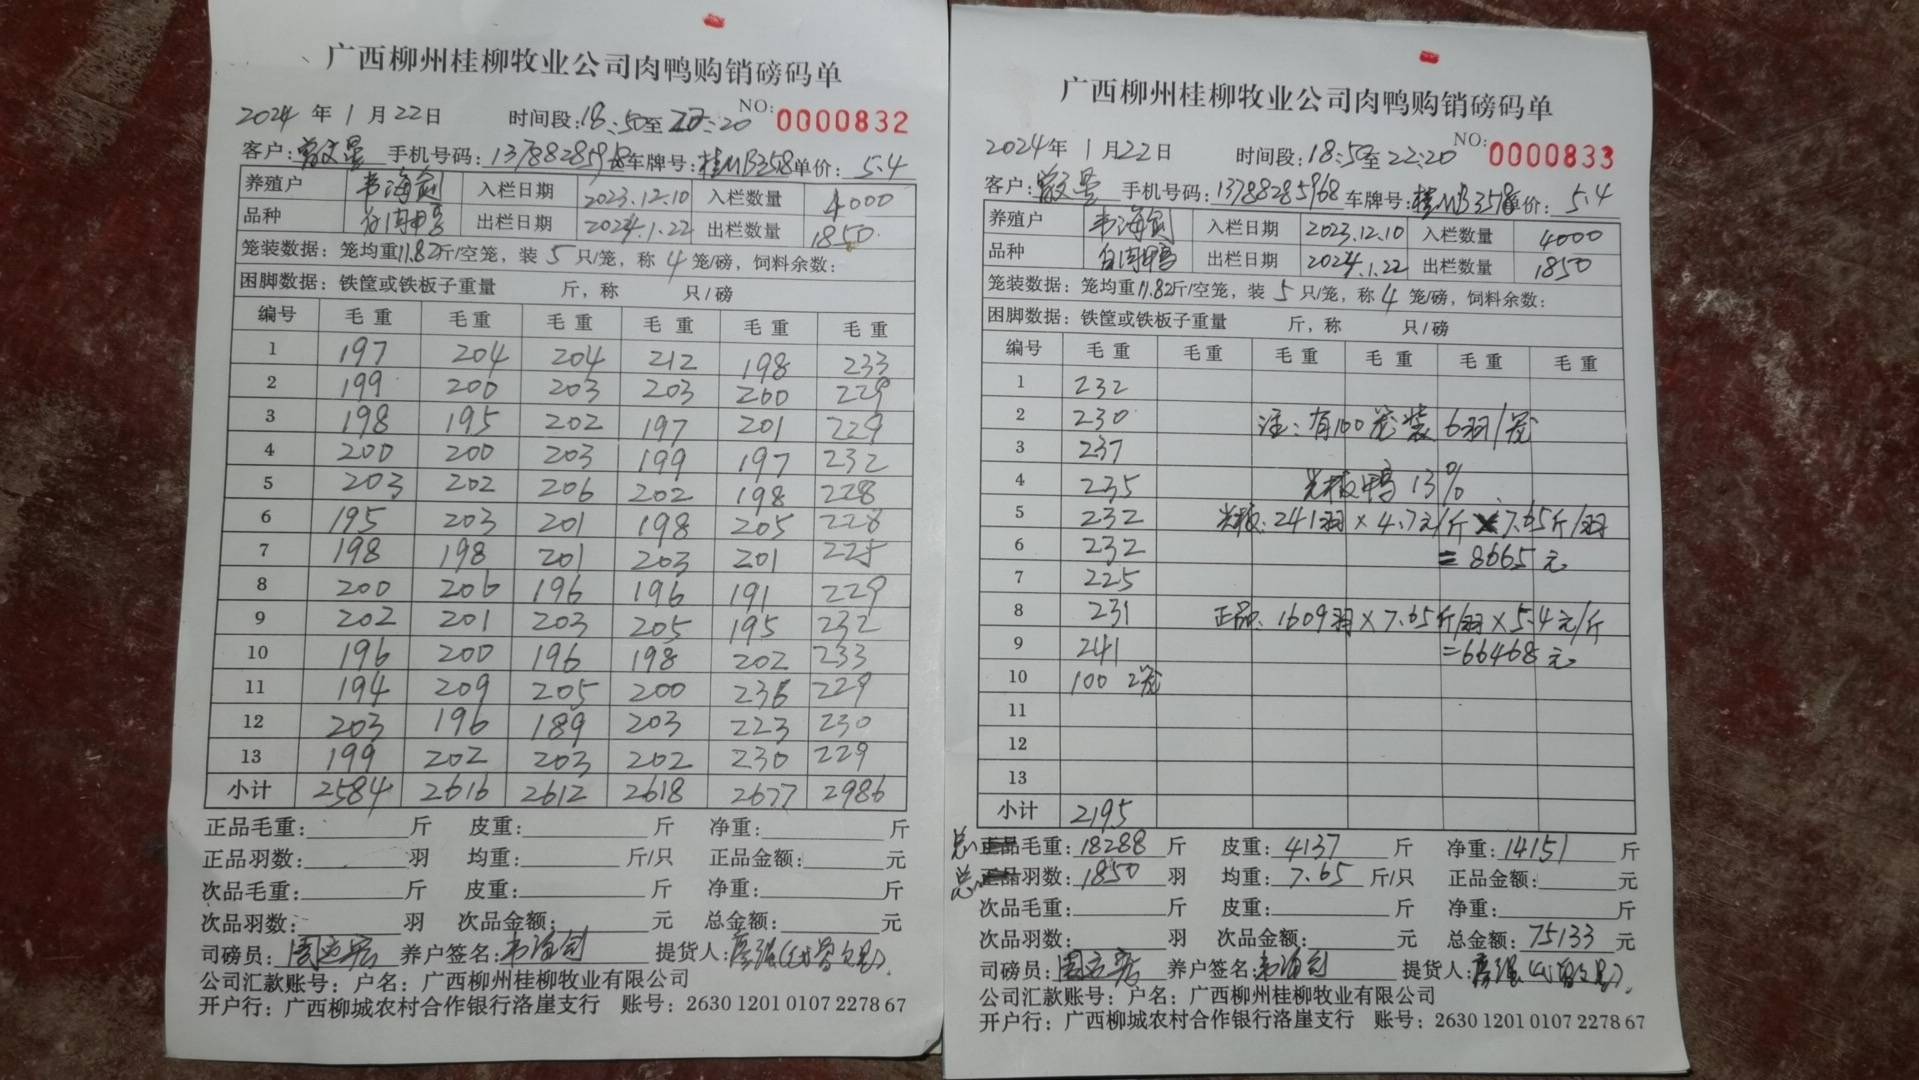 广西柳州桂柳牧业公司肉鸭购销磅码单
2024年1月22日 时间段:18:50至22:20 NO: 0000832
客户:曾文星 手机号码:13788285968 车牌号:桂MB3578 单价:5.4
养殖户 韦海剑 入栏日期 2023.12.10 入栏数量 4000
品种 白肉鸭 出栏日期 2024.1.22 出栏数量 1850
笼装数据:笼均重11.82斤/空笼,装5只/笼,称4笼/磅,饲料余数:
困脚数据:铁筐或铁板子重量 斤,称 只/磅
编号 毛重 毛重 毛重 毛重 毛重 毛重
1 197 204 204 212 198 233
2 199 200 203 203 200 229
3 198 195 202 197 201 229
4 200 200 203 199 197 232
5 203 202 206 202 198 228
6 195 203 201 198 205 228
7 198 198 201 203 201 225
8 200 206 196 196 191 229
9 202 201 203 205 195 232
10 196 200 196 198 202 233
11 194 209 205 200 236 229
12 203 196 189 203 223 230
13 199 202 203 202 230 229
小计 2584 2616 2612 2618 2677 2986
正品毛重: 斤 皮重: 斤 净重: 斤
正品羽数: 羽 均重: 斤/只 正品金额: 元
次品毛重: 斤 皮重: 斤 净重: 斤
次品羽数: 羽 次品金额: 元 总金额: 元
司磅员: 养户签名:韦海剑 提货人:
公司汇款账号:户名:广西柳州桂柳牧业有限公司
开户行:广西柳城农村合作银行洛崖支行 账号:2630 1201 0107 2278 67
广西柳州桂柳牧业公司肉鸭购销磅码单
2024年1月22日 时间段:18:50至22:20 NO: 0000833
客户:曾文星 手机号码:13788285968 车牌号:桂MB3578 单价:5.4
养殖户 韦海剑 入栏日期 2023.12.10 入栏数量 4000
品种 白肉鸭 出栏日期 2024.1.22 出栏数量 1850
笼装数据:笼均重11.82斤/空笼,装5只/笼,称4笼/磅,饲料余数:
困脚数据:铁筐或铁板子重量 斤,称 只/磅
编号 毛重 毛重 毛重 毛重 毛重 毛重
1 232
2 230 注:有100笼装6羽/笼
3 237
4 235 光板鸭13%
5 232 光板:241羽×4.7元/斤×7.65斤/羽
6 232 =8665元
7 225
8 231 正品:1609羽×7.65斤/羽×5.4元/斤
9 241 =66468元
10 100 2笼
11
12
13
小计 2195
总 正品毛重:18288斤 皮重:4137斤 净重:14151斤
总 正品羽数:1850羽 均重:7.65斤/只 正品金额: 元
次品毛重: 斤 皮重: 斤 净重: 斤
次品羽数: 羽 次品金额: 元 总金额:75133元
司磅员: 养户签名:韦海剑 提货人:
公司汇款账号:户名:广西柳州桂柳牧业有限公司
开户行:广西柳城农村合作银行洛崖支行 账号:2630 1201 0107 2278 67